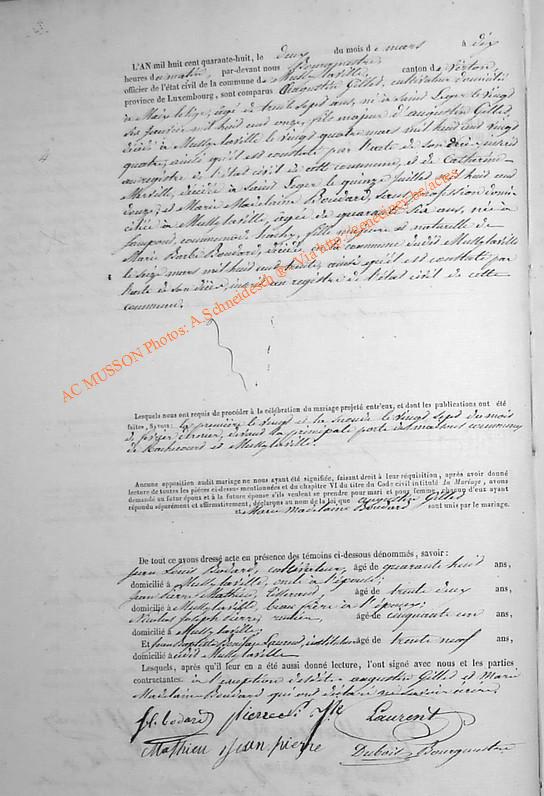 L'AN mil huit cent quarante-huit, le deux du mois de mars à dix
heures du matin, par-devant nous Bourgmestre,
officier de l'état civil de la commune de Mussy-laville, canton de Virton,
province de Luxembourg, sont comparus Augustin Gillet, cultivateur domicilié
à âgé de trente sept ans, né à Saint Leger le vingt
six fevrier mil huit cent onze, fils majeur d'augustin Gillet
décédé à Mussy-laville le vingt quatre mars mil huit cent vingt
quatre, ainsi qu'il est constaté par l'acte de son décès inscrit
au registre de l'état civil de cette commune, et de Catherine
décédée à Saint Leger le quinze juillet mil huit cent
douze; et Marie Madelaine Boudard, sans profession domi-
ciliée à Mussy-laville, agée de quarante six ans, née à
commune de fille majeure et naturelle de
Marie Barbe Boudard, décédée en cette commune dudit Mussy-laville
le seize mars mil huit cent trente, ainsi qu'il est constaté par
l'acte de son décès inscrit au registre de l'état civil de cette
commune.
AC MUSSON Photos: A.Schneidesch ®. Via http://geneciney.be/actes
Lesquels nous ont requis de procéder à la célébration du mariage projeté entr'eux, et dont les publications ont été
faites, savoir: la première le vingt et la seconde le vingt sept du mois
de février dernier, devant la principale porte des maisons communes
de Rachecourt et Mussy-laville.
Aucune opposition audit mariage ne nous ayant été signifiée, faisant droit à leur réquisition, après avoir donné
lecture de toutes les pièces ci-dessus mentionnées et du chapitre VI du titre du Code civil intitulé du Mariage, avons
demandé au futur époux et à la future épouse s'ils veulent se prendre pour mari et pour femme, chacun d'eux ayant
répondu séparément et affirmativement, déclarons au nom de la loi que augustin Gillet
et Marie Madelaine Boudard sont unis par le mariage.
De tout ce avons dressé acte en présence des témoins ci-dessous dénommés, savoir:
Jean Louis Bodard, cultivateur, âgé de quarante huit ans,
domicilié à Mussy-laville, oncle à l'épouse;
Jean Pierre Mathieu, Tisserand, âgé de trente deux ans,
domicilié à Mussy-laville, beau frère à l'époux;
Nicolas Joseph Pierre, rentier, âgé de cinquante un ans,
domicilié à Mussy-laville;
Et Jean Baptiste Laurent, instituteur âgé de trente neuf ans,
domicilié audit Mussy-laville
Lesquels, après qu'il leur en a été aussi donné lecture, l'ont signé avec nous et les parties
contractantes. à l'exception desdits augustin Gillet et Marie
Madelaine Boudard qui ont déclaré ne savoir écrire.
Laurent
Mathieu jean pierre
Bourgmestre